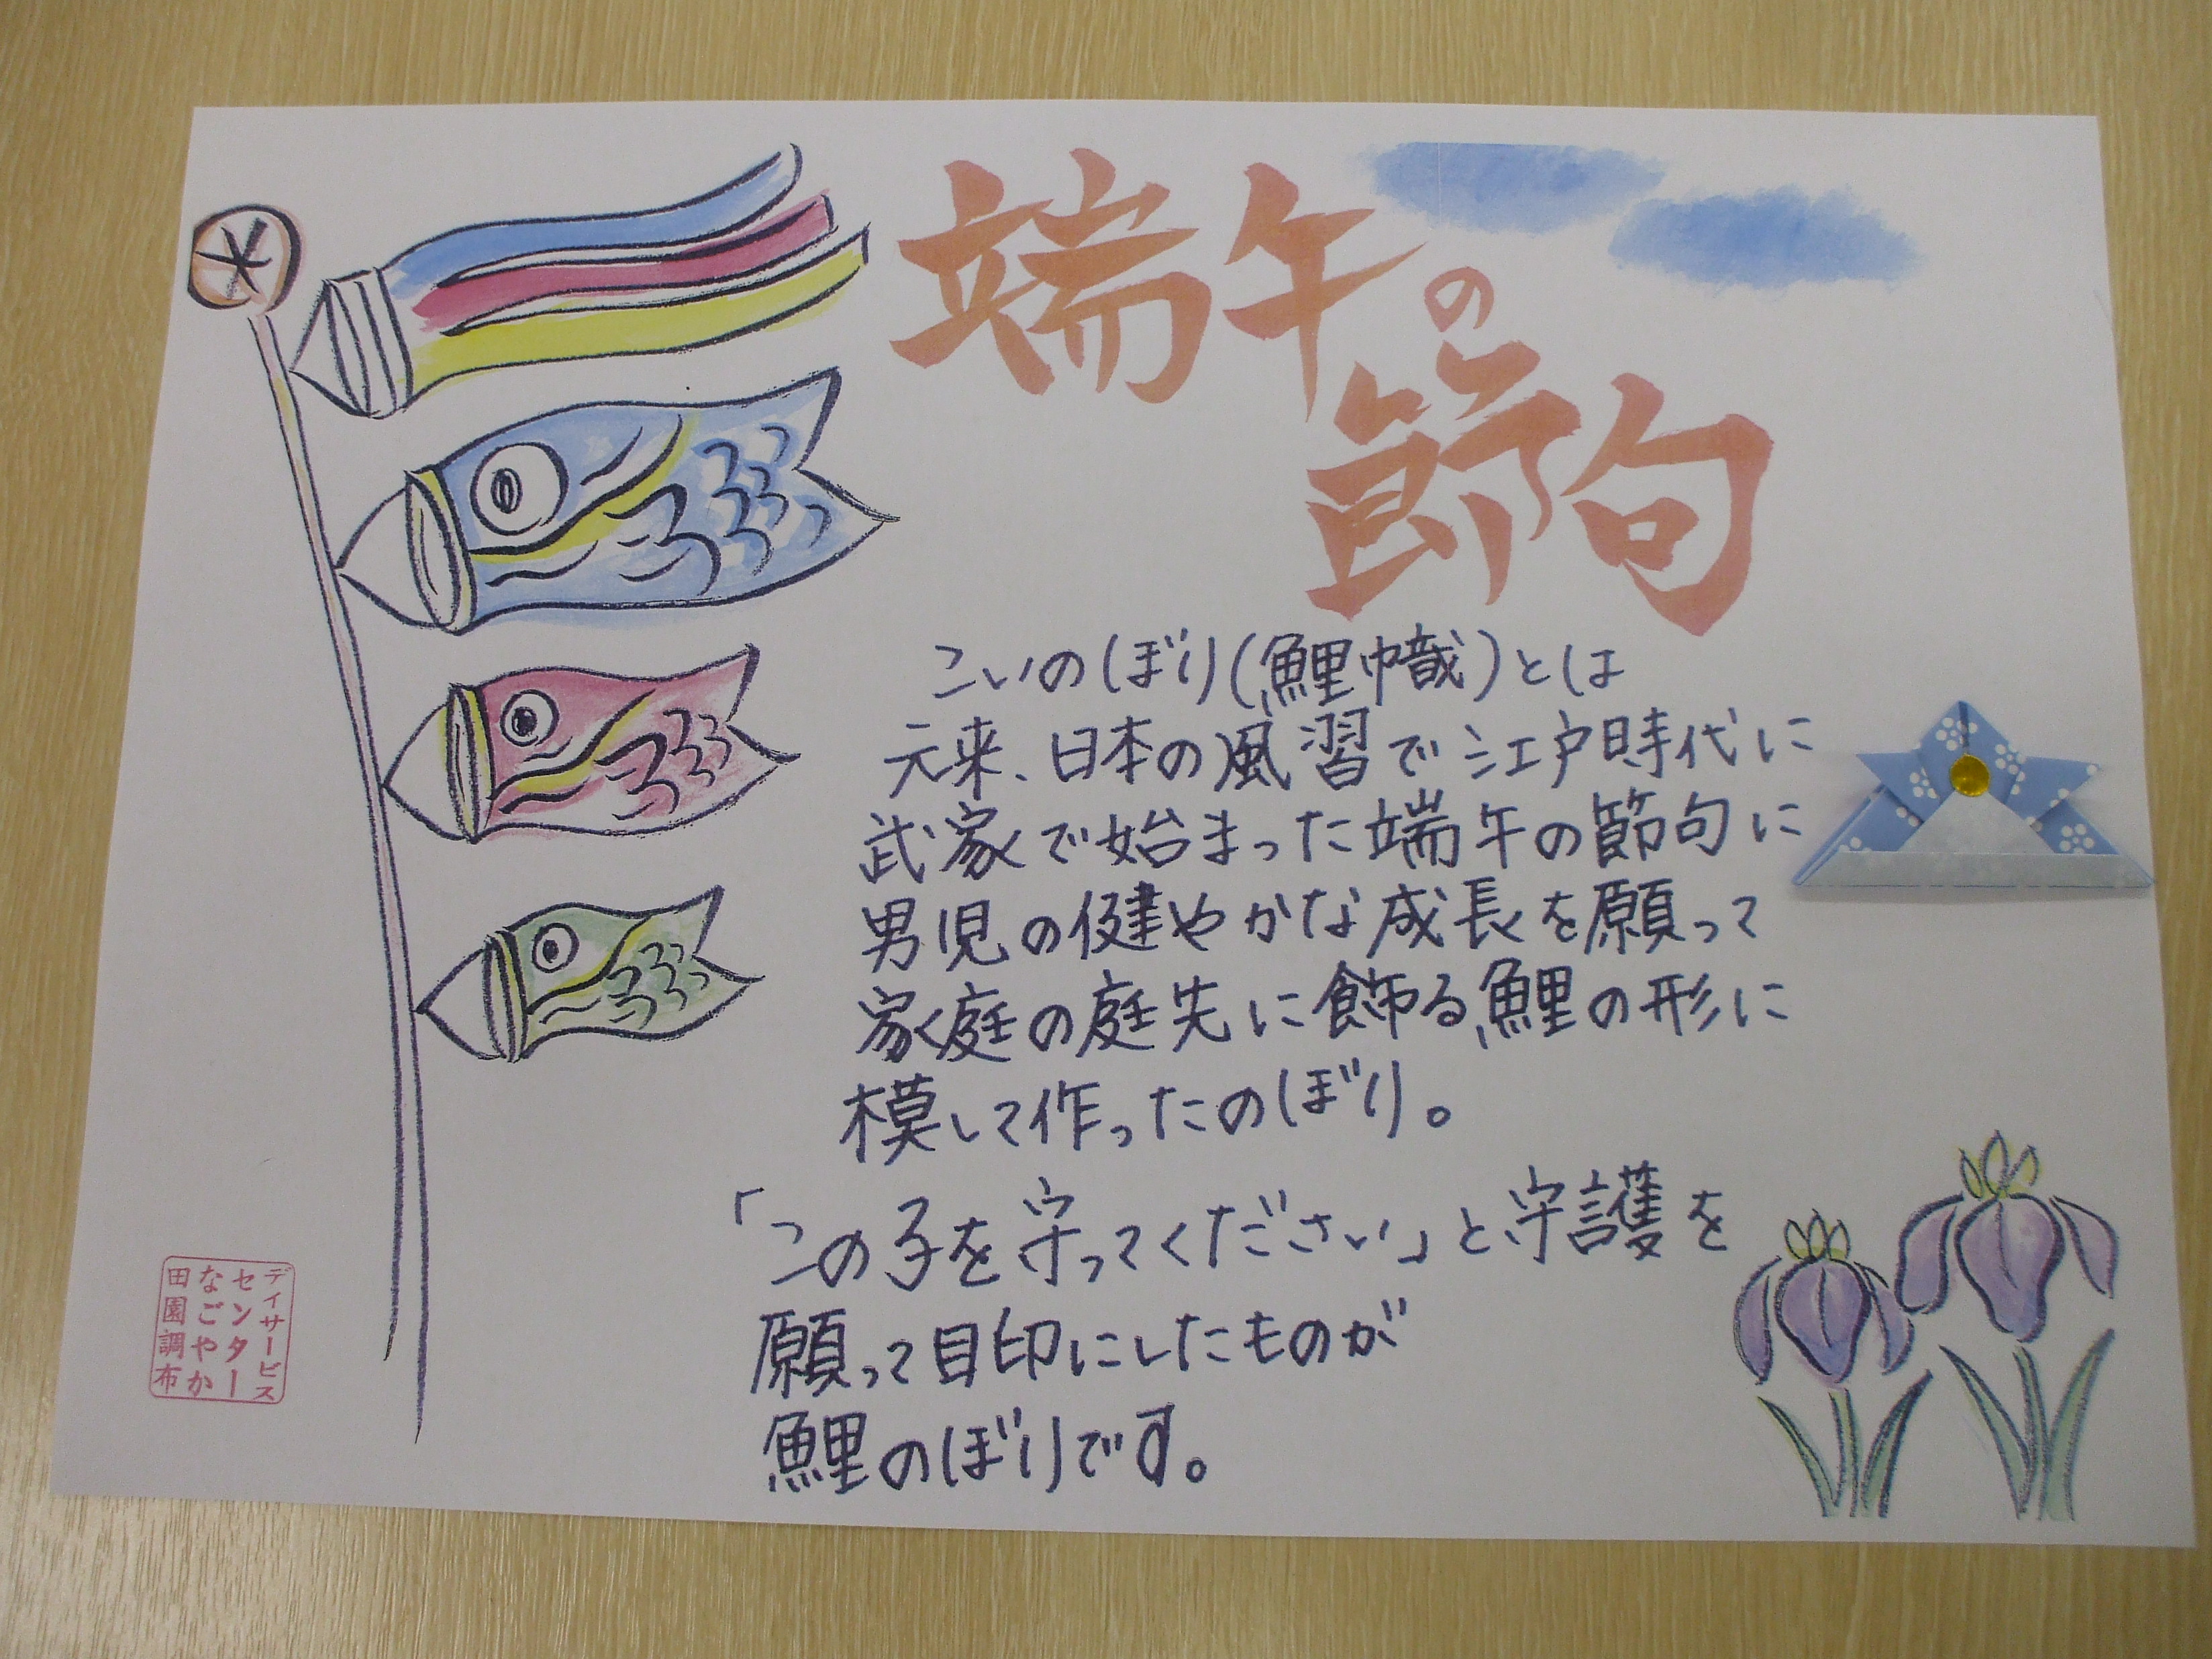 端午の
節句
こいのぼり(鯉幟)とは
元来、日本の風習で江戸時代に
武家で始まった端午の節句に
男児の健やかな成長を願って
家庭の庭先に飾る鯉の形に
模して作ったのぼり。
「この子を守ってください」と守護を
願って目印にしたものが
鯉のぼりです。
デイサービス
センター
なごやか
田園調布